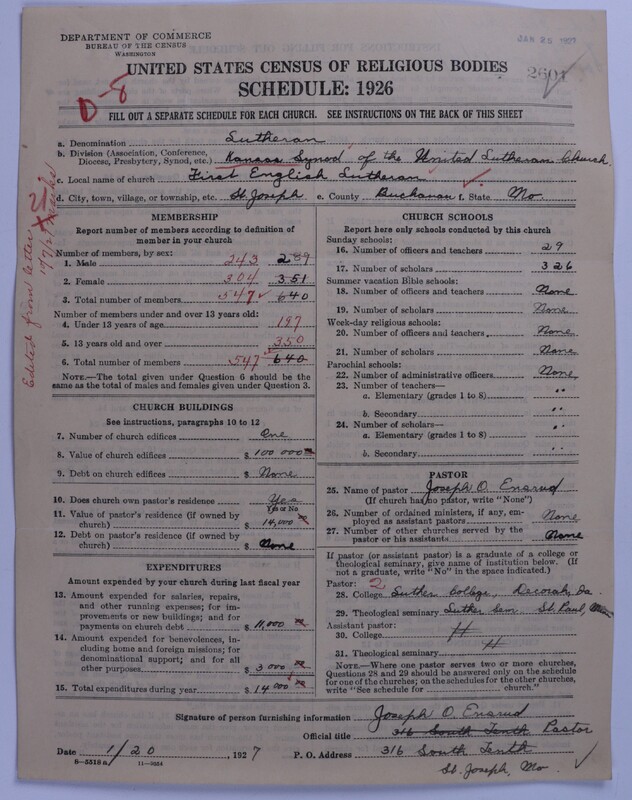 DEPARTMENT OF COMMERCE
BUREAU OF THE CENSUS
WASHINGTON
JAN 25 1927
UNITED STATES CENSUS OF RELIGIOUS BODIES
2601
SCHEDULE: 1926
D-8
FILL OUT A SEPARATE SCHEDULE FOR EACH CHURCH. SEE INSTRUCTIONS ON THE BACK OF THIS SHEET
a. Denomination Lutheran
b. Division (Association, Conference, Diocese, Presbytery, Synod, etc.) Kansas Synod of the United Lutheran Church
c. Local name of church First English Lutheran
d. City, town, village, or township, etc. St. Joseph e. County Buchanan f. State Mo.
Edited from letter
MEMBERSHIP
Report number of members according to definition of
member in your church
Number of members, by sex:
1. Male 243 289
2. Female 304 351
3. Total number of members 547 640
Number of members under and over 13 years old:
4. Under 13 years of age 197
5. 13 years old and over 350
6. Total number of members 547 640
NOTE.—The total given under Question 6 should be
same as the total of males and females given under Question 3.
CHURCH BUILDINGS
See instructions, paragraphs 10 to 12
7. Number of church edifices One
8. Value of church edifices $ 100 000
9. Debt on church edifices $ None
10. Does church own pastor's residence Yes
Yes or No
11. Value of pastor's residence (if owned by
church) $ 14,000
12. Debt on pastor's residence (if owned by
church) $ None
EXPENDITURES
Amount expended by your church during last fiscal year
13. Amount expended for salaries, repairs,
and other running expenses; for im-
provements or new buildings; and for
payments on church debt $ 11,000
14. Amount expended for benevolences, in-
cluding home and foreign missions; for
denominational support; and for all
other purposes $ 3 000
15. Total expenditures during year $ 14 000
CHURCH SCHOOLS
Report here only schools conducted by this church
Sunday schools:
16. Number of officers and teachers 29
17. Number of scholars 326
Summer vacation Bible schools:
18. Number of officers and teachers None
19. Number of scholars None
Week-day religious schools:
20. Number of officers and teachers None
21. Number of scholars None
Parochial schools:
22. Number of administrative officers None
23. Number of teachers—
a. Elementary (grades 1 to 8) "
b. Secondary "
24. Number of scholars—
a. Elementary (grades 1 to 8) "
b. Secondary "
PASTOR
25. Name of pastor Joseph O. Ensrud
(If church has no pastor, write "None")
26. Number of ordained ministers, if any, em-
ployed as assistant pastors None
27. Number of other churches served by the
pastor or his assistants None
If pastor (or assistant pastor) is a graduate of a college or
theological seminary, give name of institution below. (If
not a graduate, write "No" in the space indicated.)
Pastor: 2
28. College Luther College, Decorah, Ia.
29. Theological seminary Luther Sem St. Paul,
Assistant pastor:
30. College "
31. Theological seminary "
NOTE.—Where one pastor serves two or more churches,
Questions 28 and 29 should be answered only on the schedule
for one of the churches; on the schedules for the other churches,
write "See schedule for church."
Signature of person furnishing information Joseph O. Ensrud
Official title 316 South Tenth Pastor
Date 1/20, 1927 P. O. Address 316 South Tenth
8-5518a 11-9254
St. Joseph, Mo.